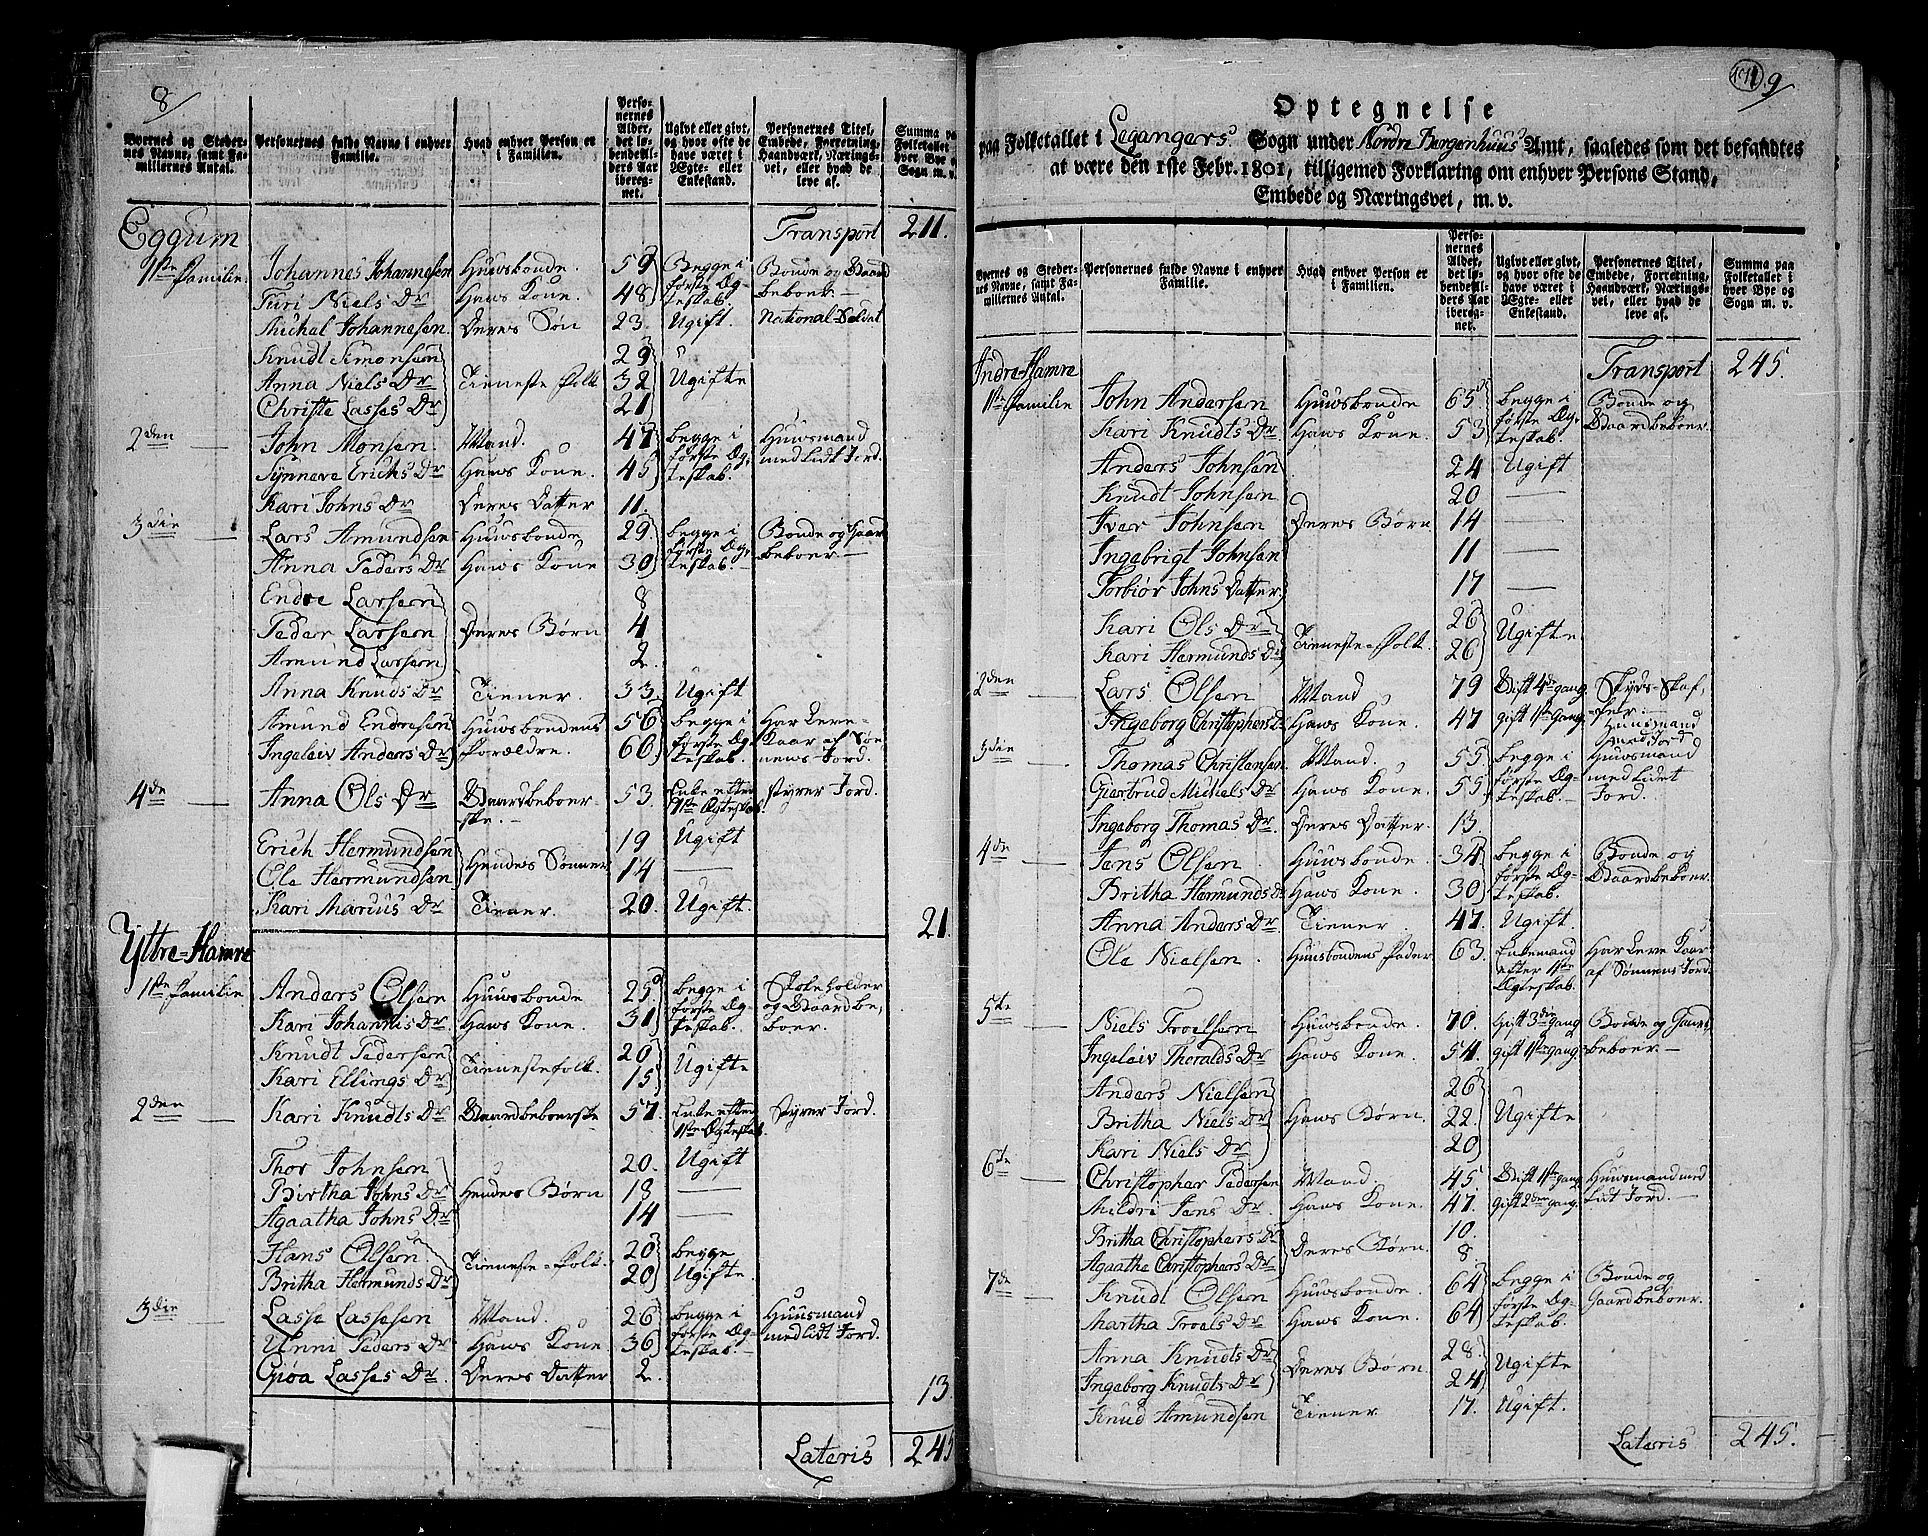 8/
Byernes og Steder-
nes Navne, samt Fa-
miliernes Antal.
Personernes fulde Navne i enhver
Familie.
Hvad enhver Person er
i Familien.
Perso-
nernes
Alder,
det lø-
bende Al-
ders Aar
ibereg-
net.
Ugivt eller givt,
og hvor ofte de
have været i
Ægte- eller
Enkestand.
Personernes Titel,
Embede, Forretning,
Haandværk, Nærings-
vei, eller hvad de
leve af.
Summa paa
Folketallet i
hver Bye og
Sogn m. v.
Eggum Transport 211.
1ste Familie Johannes Johannesen Huusbonde. 59 Begge i Bonde og Gaard
Turi Niels Dr Hans Kone. 48 første Æg- beboer.
teskab.
Michel Johannesen Deres Søn 23. Ugift. National-Soldat
Knudt Simonsen 29
Anna Niels Dr Tieneste Folk 32 Ugifte
Christe Lasses Dr 21
2den John Monsen. Mand. 47 begge i Huusmand
Synneve Erichs Dr Hans Kone. 45 første Æg- med lidt Jord.
teskab.
Kari Johns Dr Deres Datter 11.
3die Lars Amundsen Huusbonde 29 begge i Bonde og Gaard
Anna Peders Dr Hans Kone 30 første Æg- beboer
teskab.
Endre Larsen 8
Peder Larsen Deres Børn 4
Amund Larsen 2.
Anna Knuds Dr Tiener. 33. Ugift
Amund Endresen Huusbondens 56 begge i Har Leve-
Ingeleiv Anders Dr Forældre. 60 første Æg- Kaar af Søn
teskab. nens Jord.
4de Anna Ols Dr Gaardbeboer- 53. Enke efter styrer Jord.
ske. 1ste Ægteskab.
Erich Hermundsen 19 Ugift
Ole Hermundsen Hendes Sønner 14 —
Kari Marcus Dr Tiener. 20. Ugift. 21.
Yttre-Hamre
1ste Familie Anders Olsen Huusbonde 25 begge i
Kari Johannis Dr Hans Kone. 31 første Æg- og Gaardbe-
teskab. boer.
Knudt Pedersen Tienestefolk. 20 Ugifte
Kari Ellings Dr 15
2den Kari Knudts Dr Gaardbeboerske 57. Enke efter styrer Jord.
1ste Ægteskab.
Thor Johnsen 20. Ugift
Birtha Johns Dr Hendes Børn 18 —
Agaatha Johns Dr 14 —
Hans Olsen Tieneste-Folk. 20 begge
Britha Hermunds Dr 20 Ugifte.
3die Lasse Lassesen Mand. 26 begge i Huusmand
Unni Peders Dr Hans Kone 36 første Æg- med lidt Jord.
teskab.
Giøa Lasses Dr. Deres Datter 2.
13
Lateris 245
9/
Optegnelse
paa Folketallet i Leganger's Sogn under Nordre Bergenhuus Amt, saaledes som det befandtes
at være den 1ste Febr. 1801, tilligemed Forklaring om enhver Persons Stand,
Embede og Næringsvei, m. v.
Byernes og Steder-
nes Navne, samt Fa-
miliernes Antal.
Personernes fulde Navne i enhver
Familie.
Hvad enhver Person er
i Familien.
Perso-
nernes
Alder,
det lø-
bende Al-
ders Aar
ibereg-
net.
Ugivt eller givt,
og hvor ofte de
have været i
Ægte- eller
Enkestand.
Personernes Titel,
Embede, Forretning,
Haandværk, Nærings-
vei, eller hvad de
leve af.
Summa paa
Folketallet i
hver Bye og
Sogn m. v.
Indre-Hamre Transport 245.
1ste Familie John Andersen Huusbonde 65 begge i Bonde og
Kari Knudts Dr Hans Kone. 53 første Æg- Gaardbeboer.
teskab.
Anders Johnsen 24 Ugift
Knudt Johnsen 20 —
Iver Johnsen Deres Børn 14 —
Ingebrigt Johnsen 11 —
Torbiør Johns Datter 17 —
Kari Ols Dr 26 Ugifte
Kari Hermunds Dr Tieneste-Folk. 26
2den Lars Olsen Mand 79 Gift 4de gang. Skyds-Skaf-
Ingeborg Christophers Dr Hans Kone. 47 gift 1ste Gang. fer.
Huusmand
med Jord
3die Thomas Christensen Mand. 55 begge i Huusmand
Giertrud Michels Dr Hans Kone. 55 første Æg- med lidet
teskab. Jord.
Ingeborg Thomas Dr. Deres Datter. 13.
4de Jens Olsen Huusbonde. 34 begge i Bonde og
Britha Hermunds Dr Hans Kone. 30 første Æg- Gaardbeboer.
teskab.
Anna Anders Dr Tiener. 47. Ugift.
Ole Nielsen. Huusbondens Fader 63. Enkemand Har Leve Kaar
efter 1ste af Sønnens Jord.
Ægteskab.
5te Niels Troelsen Huusbonde. 70. Gift 3die gang Bonde og Gaard-
Ingeleiv Theralds Dr Hans Kone. 54. gift 1ste gang. beboer.
Anders Nielsen 26
Britha Niels Dr Hans Børn. 22. Ugifte
Kari Niels Dr 20
6te Christopher Pedersen Mand 45 Gift 1ste gang Huusmand med
Mildri Jens Dr. Hans Kone. 47. gift 2den gang. lidt Jord.
Britha Christophers Dr Deres Børn. 10.
Agaathe Christophers Dr 8
7de Knudt Olsen Huusbonde. 64 begge i Bonde og
Martha Troels Dr Hans Kone. 64 første Æg- Gaardbeboer.
teskab.
Anna Knudts Dr Deres Børn. 28. Ugifte
Ingeborg Knudts Dr 24
Knud Amundsen Tiener 17. Ugift.
Lateris 245.